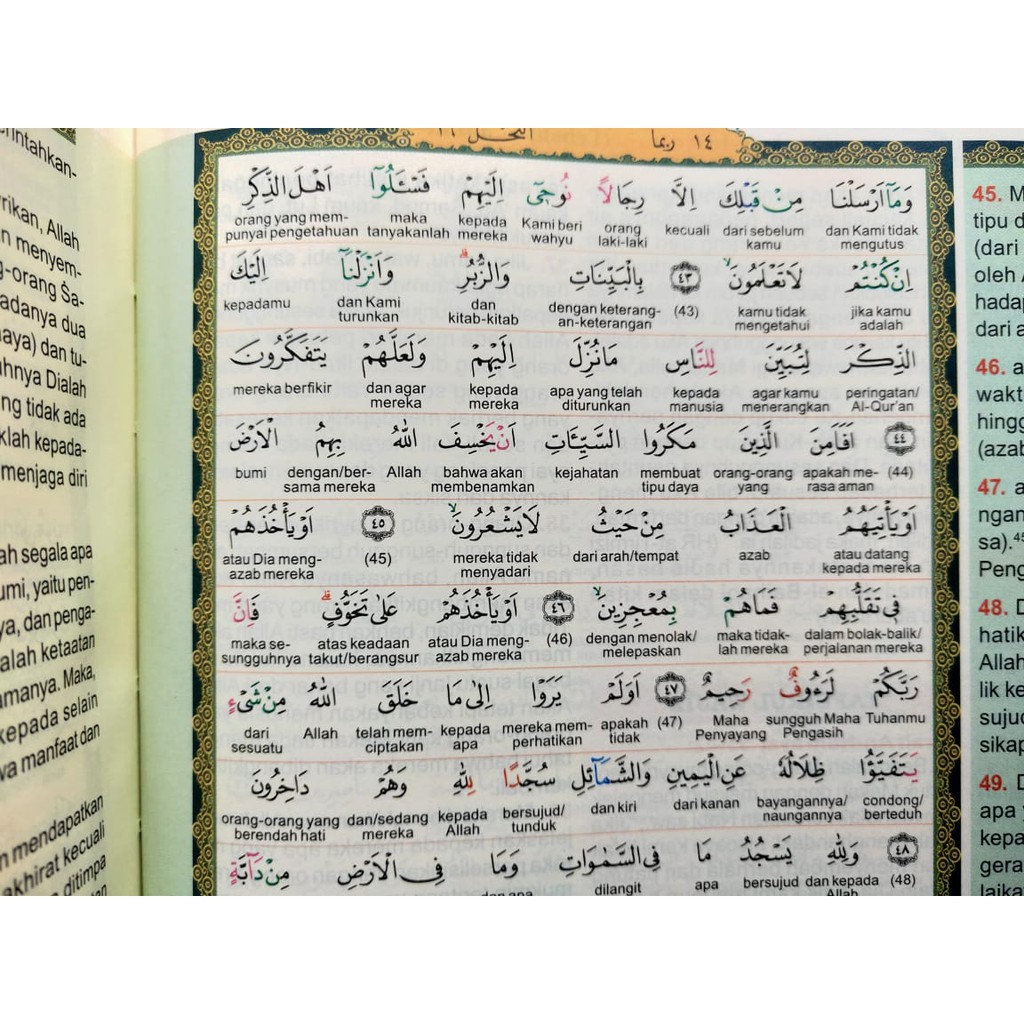 ١٤ ربما
النحل ١٦
وَمَآ اَرْسَلْنَا مِنْ قَبْلِكَ اِلَّا رِجَالًا نُّوْحِيْٓ اِلَيْهِمْ فَسْـَٔلُوْٓا اَهْلَ الذِّكْرِ
dan Kami tidak mengutus dari sebelum kamu kecuali orang laki-laki Kami beri wahyu kepada mereka maka tanyakanlah orang yang mem-punyai pengetahuan
اِنْ كُنْتُمْ لَا تَعْلَمُوْنَۙ ٤٣ بِالْبَيِّنَاتِ وَالزُّبُرِۗ وَاَنْزَلْنَآ اِلَيْكَ
jika kamu adalah kamu tidak mengetahui (43) dengan keterang-an-keterangan dan kitab-kitab dan Kami turunkan kepadamu
الذِّكْرَ لِتُبَيِّنَ لِلنَّاسِ مَا نُزِّلَ اِلَيْهِمْ وَلَعَلَّهُمْ يَتَفَكَّرُوْنَ
peringatan/ Al-Qur'an agar kamu menerangkan kepada manusia apa yang telah diturunkan kepada mereka dan agar mereka mereka berfikir
٤٤ اَفَاَمِنَ الَّذِيْنَ مَكَرُوا السَّيِّاٰتِ اَنْ يَّخْسِفَ اللّٰهُ بِهِمُ الْاَرْضَ
(44) apakah me-rasa aman orang-orang yang membuat tipu daya kejahatan bahwa akan membenamkan Allah dengan/ber-sama mereka bumi
اَوْ يَأْتِيَهُمُ الْعَذَابُ مِنْ حَيْثُ لَا يَشْعُرُوْنَۙ ٤٥ اَوْ يَأْخُذَهُمْ
atau datang kepada mereka azab dari arah/tempat mereka tidak menyadari (45) atau Dia meng-azab mereka
فِيْ تَقَلُّبِهِمْ فَمَا هُمْ بِمُعْجِزِيْنَۙ ٤٦ اَوْ يَأْخُذَهُمْ عَلٰى تَخَوُّفٍۗ فَاِنَّ
dalam bolak-balik/ perjalanan mereka maka tidak-lah mereka dengan menolak/ melepaskan (46) atau Dia meng-azab mereka atas keadaan takut/berangsur maka se-sungguhnya
رَبَّكُمْ لَرَءُوْفٌ رَّحِيْمٌ ٤٧ اَوَلَمْ يَرَوْا اِلٰى مَا خَلَقَ اللّٰهُ مِنْ شَيْءٍ
Tuhanmu sungguh Maha Pengasih Maha Penyayang (47) apakah tidak mereka mem-perhatikan kepada apa telah mem-ciptakan Allah dari sesuatu
يَّتَفَيَّؤُا ظِلٰلُهٗ عَنِ الْيَمِيْنِ وَالشَّمَاۤئِلِ سُجَّدًا لِّلّٰهِ وَهُمْ دَاخِرُوْنَ
condong/ berteduh bayangannya/ naungannya dari kanan dan kiri bersujud/ tunduk kepada Allah dan/sedang mereka orang-orang yang berendah hati
٤٨ وَلِلّٰهِ يَسْجُدُ مَا فِى السَّمٰوٰتِ وَمَا فِى الْاَرْضِ مِنْ دَاۤبَّةٍ
(48) dan kepada Allah bersujud apa dilangit dan apa
rintahkan-
rikan, Allah
n menyem-
g-orang Sa-
adanya dua
naya) dan tu-
uhnya Dialah
ng tidak ada
klah kepada-
menjaga diri
ah segala apa
umi, yaitu pen-
ya, dan penga-
alah ketaatan
amanya. Maka,
kepada selain
ya manfaat dan
n mendapatkan
akhirat kecuali
ditimpa
45. M
tipu d
(dari
oleh A
hadap
dari a
46. a
wakt
hingg
(azab
47. a
ngan
sa).
Peng
48. D
hatik
Allah
lik ke
sujud
sikap
49. D
apa y
kepa
gera
laika